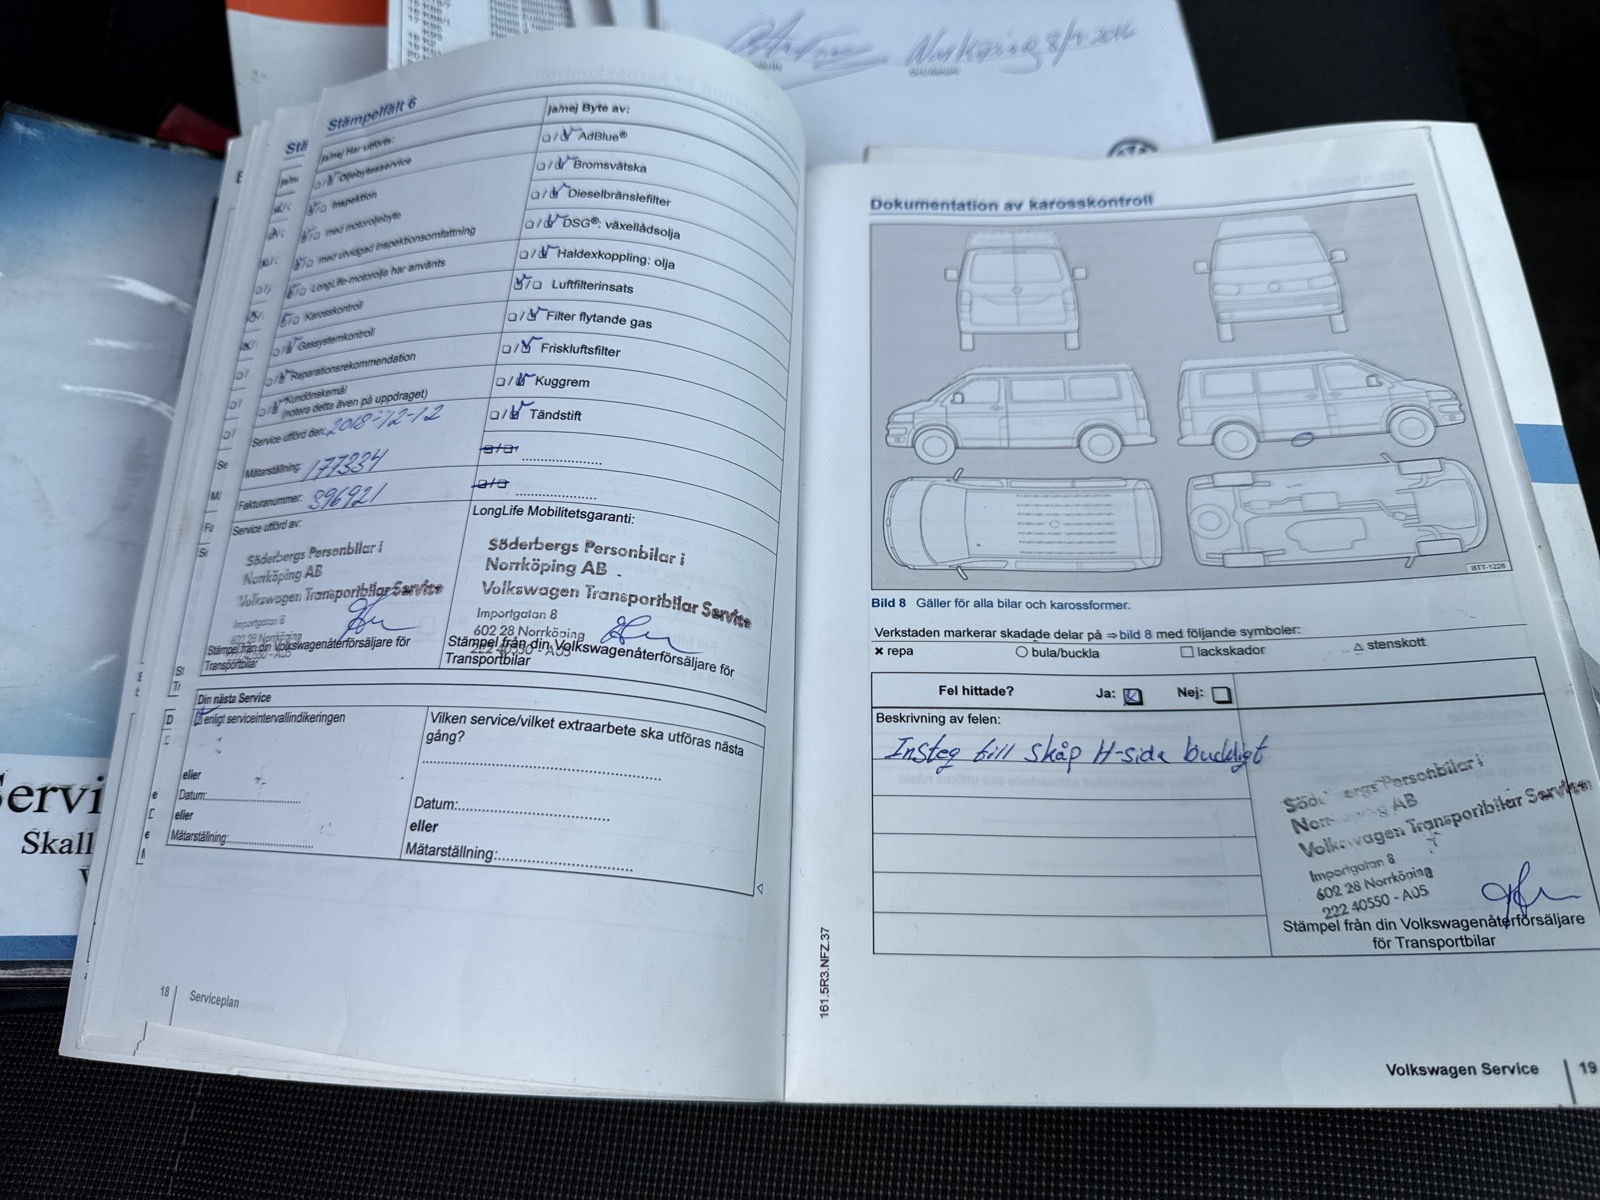 Norrköping 8/7-2016
Stämpelfält 6
ja/nej Har utförts:
Oljebytesservice
Inspektion
med motoroljebyte
med utvidgad inspektionsomfattning
LongLife-motorolja har använts
Karosskontroll
Gassystemkontroll
Reparationsrekommendation
Kundönskemål
(notera detta även på uppdraget)
Service utförd den: 2018-12-12
Mätarställning: 177334
Fakturanummer: 396921
Service utförd av:
Söderbergs Personbilar i
Norrköping AB
Volkswagen Transportbilar Service
Importgatan 8
602 28 Norrköping
222 40550 - A05
Stämpel från din Volkswagenåterförsäljare för
Transportbilar
ja/nej Byte av:
AdBlue®
Bromsvätska
Dieselbränslefilter
DSG®: växellådsolja
Haldexkoppling: olja
Luftfilterinsats
Filter flytande gas
Friskluftsfilter
Kuggrem
Tändstift
LongLife Mobilitetsgaranti:
Söderbergs Personbilar i
Norrköping AB
Volkswagen Transportbilar Service
Importgatan 8
602 28 Norrköping
222 40550 - A05
Stämpel från din Volkswagenåterförsäljare för
Transportbilar
Din nästa Service
enligt serviceintervallindikeringen
eller
Datum:
eller
Mätarställning:
Vilken service/vilket extraarbete ska utföras nästa
gång?
Datum:
eller
Mätarställning:
18 Serviceplan
Servi
Skall
Dokumentation av karosskontroll
BTT-1228
Bild 8 Gäller för alla bilar och karossformer.
Verkstaden markerar skadade delar på ⇒ bild 8 med följande symboler:
× repa ○ bula/buckla □ lackskador △ stenskott
Fel hittade? Ja: Nej:
Beskrivning av felen:
Insteg till skåp H-sida buckligt
Söderbergs Personbilar i
Norrköping AB
Volkswagen Transportbilar Service
Importgatan 8
602 28 Norrköping
222 40550 - A05
Stämpel från din Volkswagenåterförsäljare
för Transportbilar
161.5R3.NFZ.37
Volkswagen Service 19